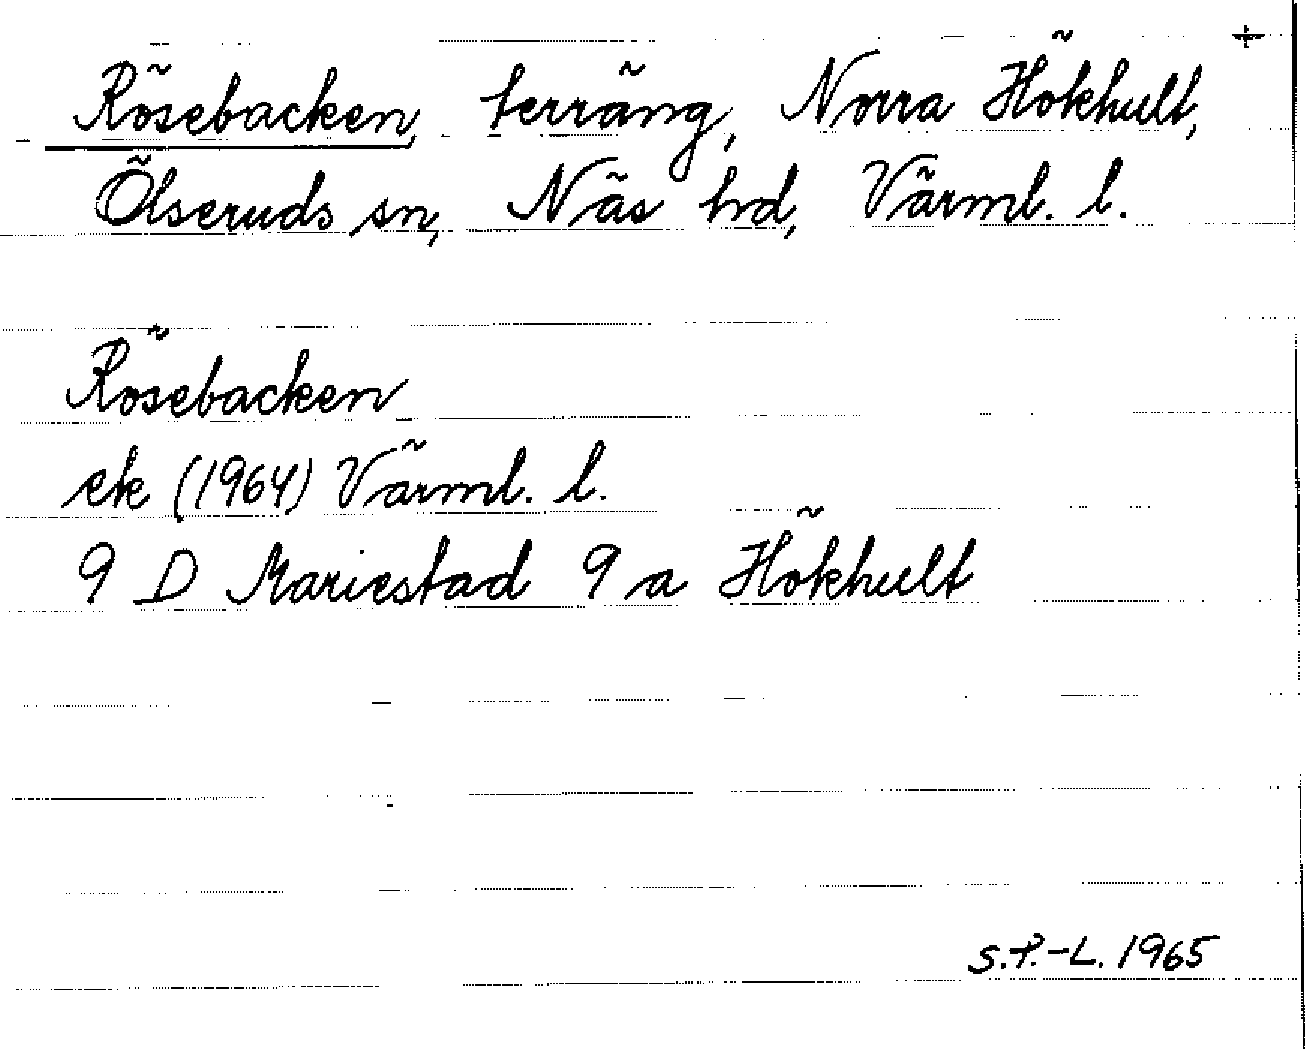 +
Rösebacken, terräng, Norra Hökhult,
Ölseruds sn, Näs hd, Värml. l.
Rösebacken
ek (1964) Värml. l.
9 D Mariestad 9 a Hökhult
S.P.-L. 1965